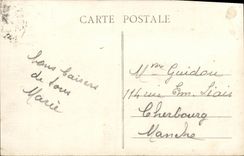 CARTE POSTALE
Bons baisers
de tous
Marie
Mme Guidou
114 rue Em. Liais
Cherbourg
Manche